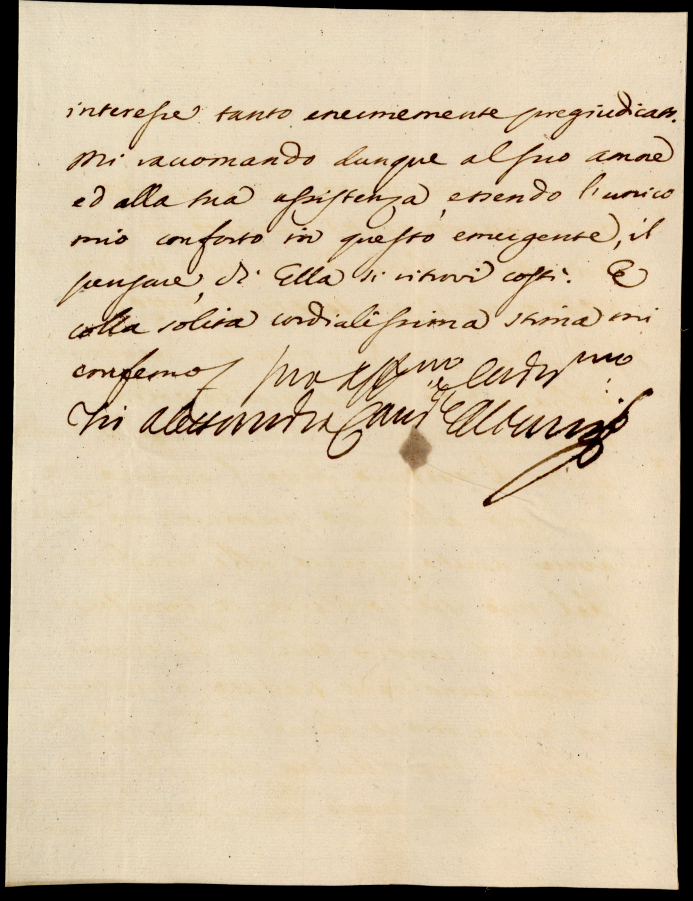 interesse tanto enormemente pregiudicato.
Mi raccomando dunque al suo amore
ed alla sua assistenza, essendo l'unico
mio conforto in questo emergente, il
pensare, ch' Ella si ritrovi costì. E
colla solita cordialissima stima mi
confermo suo Aff.mo e Cordis.mo
Alessandro Card.e Albani